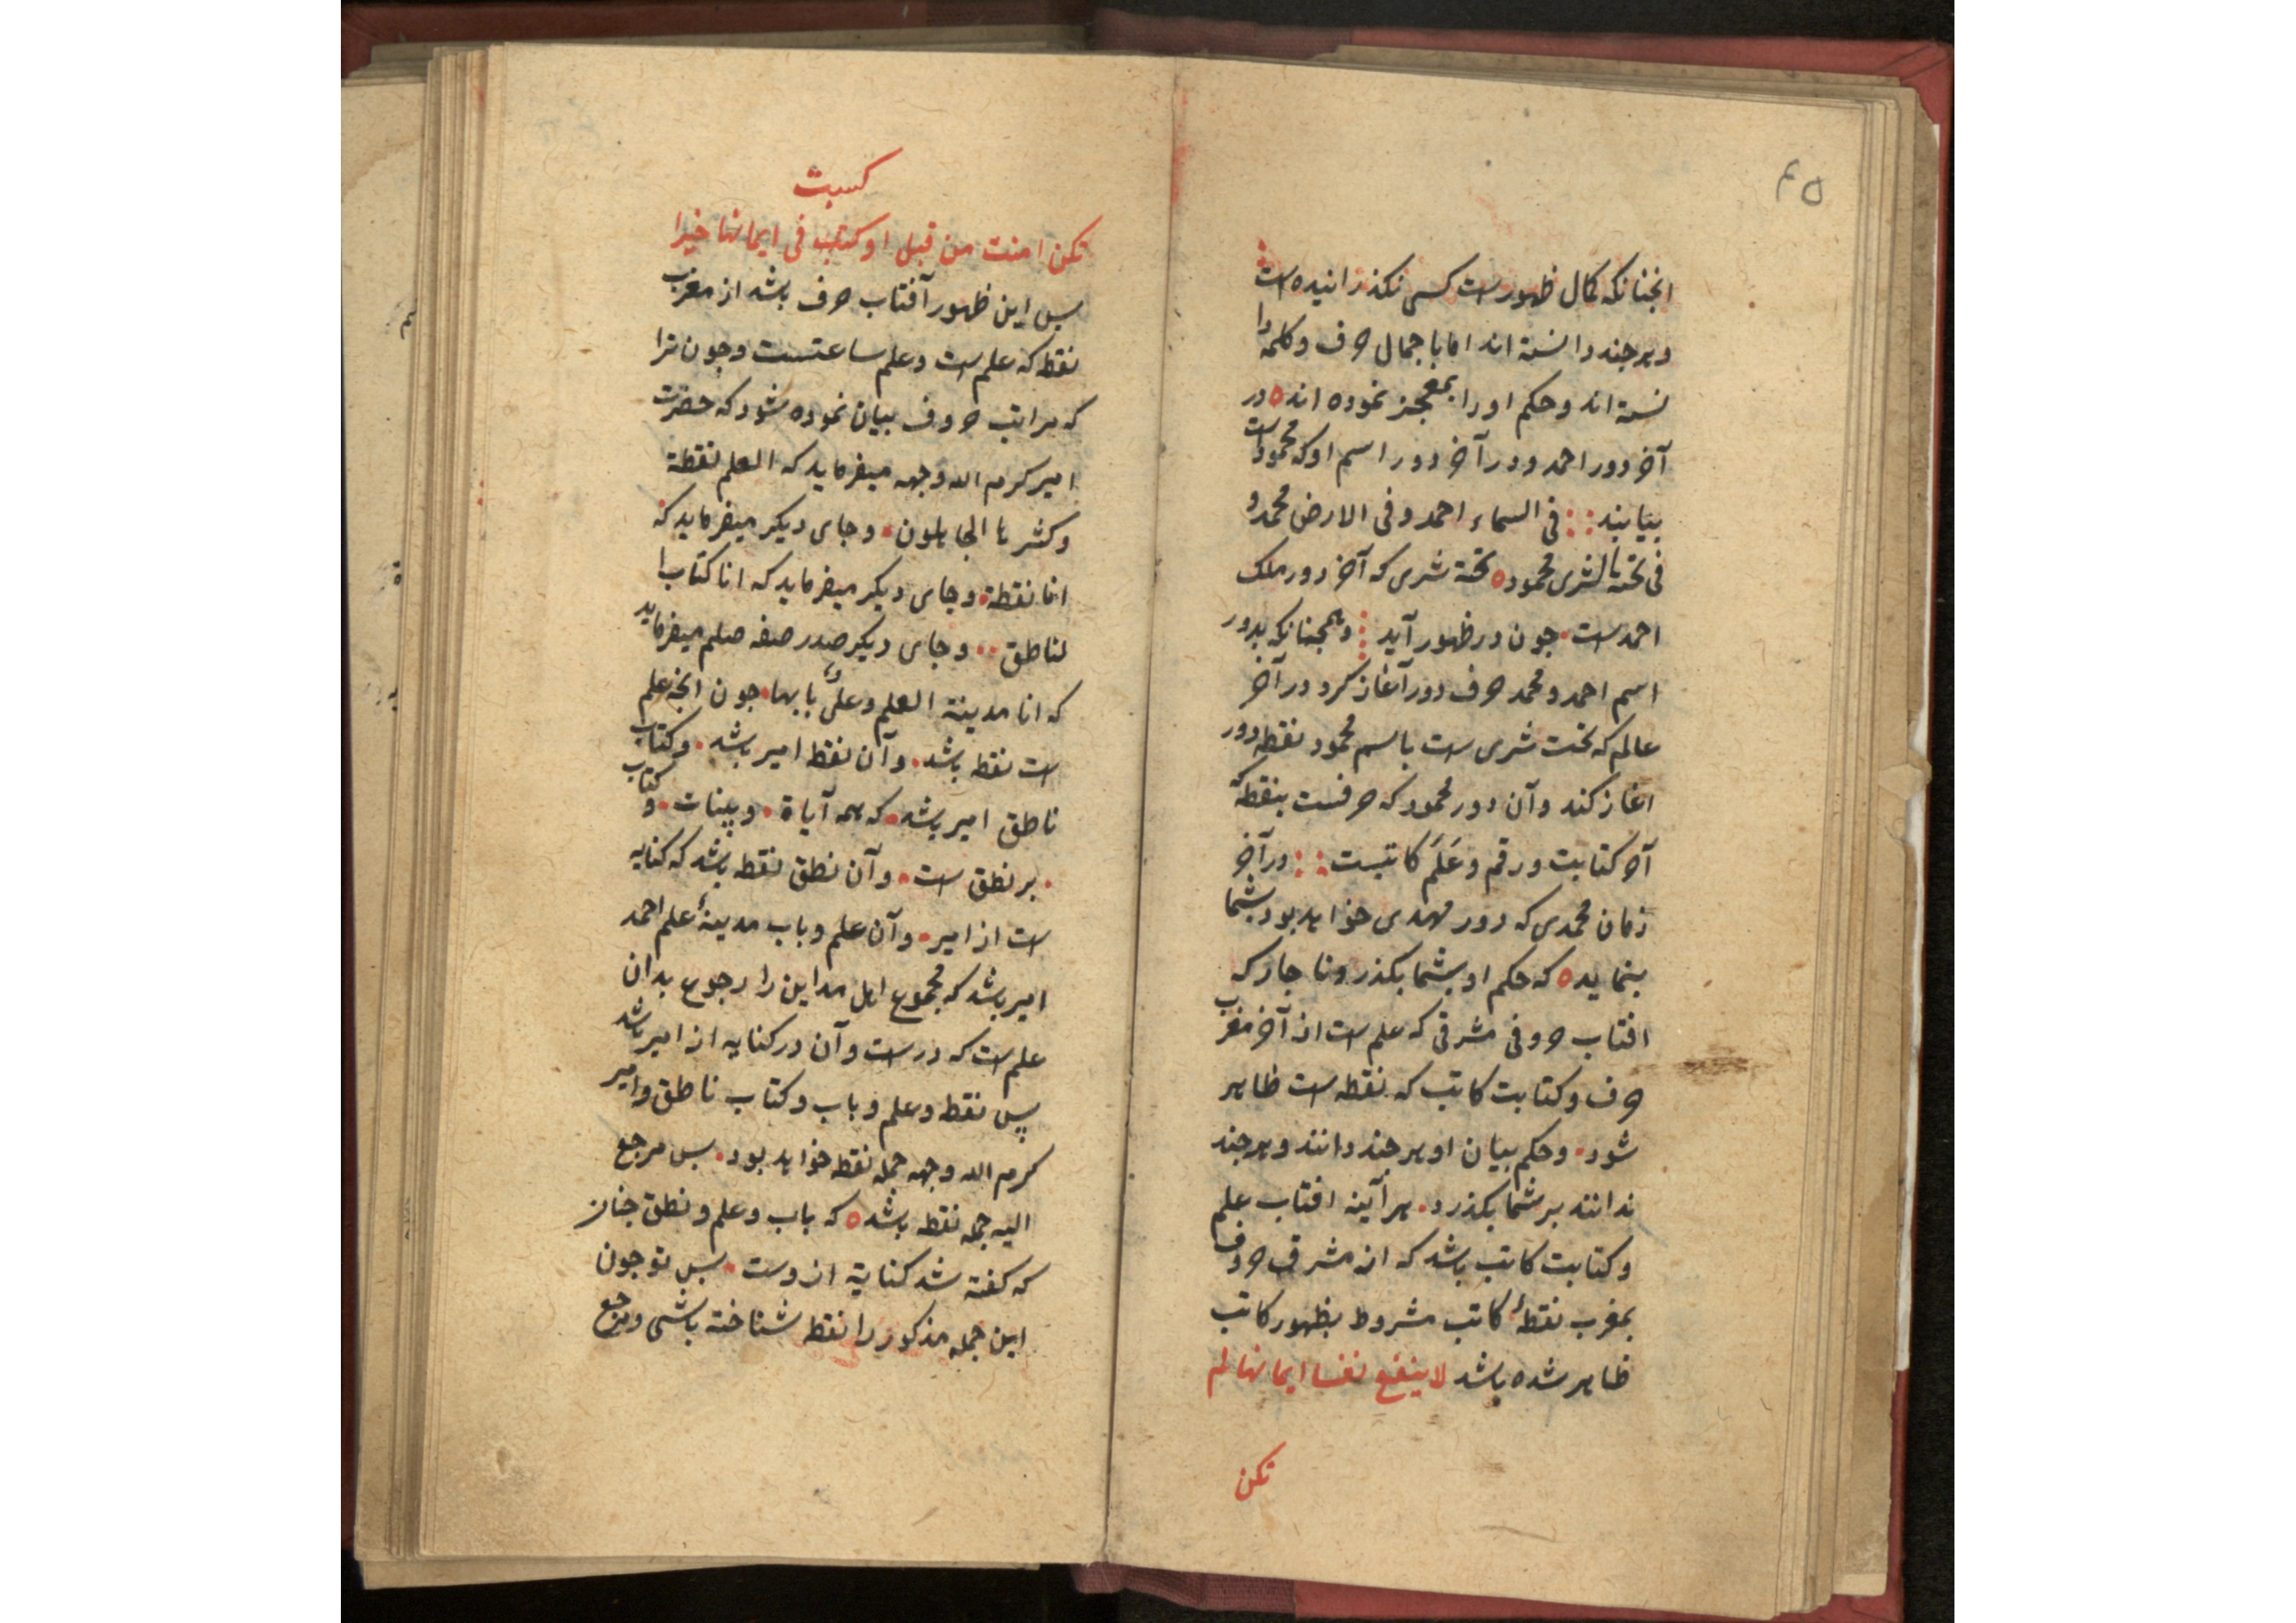 ۴۵
انجنانکه کمال ظهورست کسی نکذرانیده است
و هرجند دانسته اند اما باجمال حرف و کلمه را
نسته اند و حکم او را بمعجز نموده اند ه در
آخر دور احمد و در آخر دور اسم او که محمودست
بیابند :: فی السماء احمد و فی الارض محمد و
فی تحته الشری محمود ه تحته شری که آخر دور ملک
احمدست . جون در ظهور آید و همجنانکه بدور
اسم احمد و محمد حرف دور آغاز کرد در آخر
عالم که تخت شری ست باسم محمود نقطه دور
اغاز کند و آن دور محمود که حرفست بنقطه که
آخر کتابت و رقم و عَلَم کاتبست :: در آخر
زمان محمدی که دور مهدی خواهد بود بشما
بنماید ه که حکم او بشما بکذرد ناجار که
افتاب حروفی مشرقی که علم ست از آخر مغرب
حرف و کتابت کاتب که نقطه ست ظاهر
شود . و حکم بیان او هرجند دانند و هرجند
ندانند بر شما بکذرد . هرآینه افتاب علم
و کتابت کاتب باشد که از مشرق حروف
بمغرب نقطهٔ کاتب مشروط بظهور کاتب
ظاهر شده باشد لا ینفع نفسا ایمانها لم
تکن
کسبت
تکن امنت من قبل او کتاب فی ایمانها خیرا
پس این ظهور آفتاب حرف باشد از مغرب
نقطه که علم ست و علم ساعتست و جون ترا
که مراتب حروف بیان نموده شود که حضرت
امیر کرم الله وجهه میفرماید که العلم نقطة
و کثرها الجاهلون . و جای دیکر میفرماید که
انا نقطة . و جای دیکر میفرماید که انا کتاب ا
لناطق .. و جای دیکر صدر صفه صلم میفرماید
که انا مدینة العلم و علیٌ بابها . جون انجه علم
ست نقطه باشد . و آن نقطه امیر باشد . و کتاب
ناطق امیر باشد . که همه آیاة . و بینات . و کتاب
. بر نطق ست . و آن نطق نقطه باشد که کنایه
ست از امیر . و آن علم و باب مدینهٔ علم احمد
امیر باشد که مجموع اهل مداین را رجوع بدان
علم ست که درست و آن در کنایه از امیر باشد
پس نقطه و علم و باب و کتاب ناطق و امیر
کرم الله وجهه جمله نقطه خواهد بود . پس مرجع
الیه جمله نقطه باشد ه که باب و علم و نطق جنان
که کفته شد کنایة ازوست . پس تو جون
این جمله مذکور را نقطه شناخته باشی و مرجع